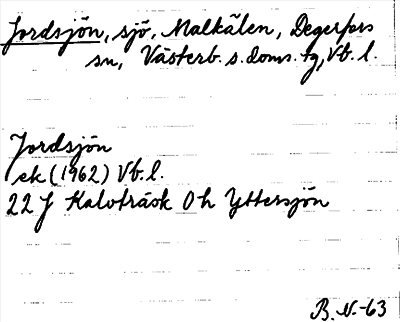 Jordsjön, sjö, Malkälen, Degerfors
sn, Västerb. s. doms. tg, Vb. l.
Jordsjön
ek (1962) Vb. l.
22 J Kalvträsk Ö h Yttersjön
B. N. -63